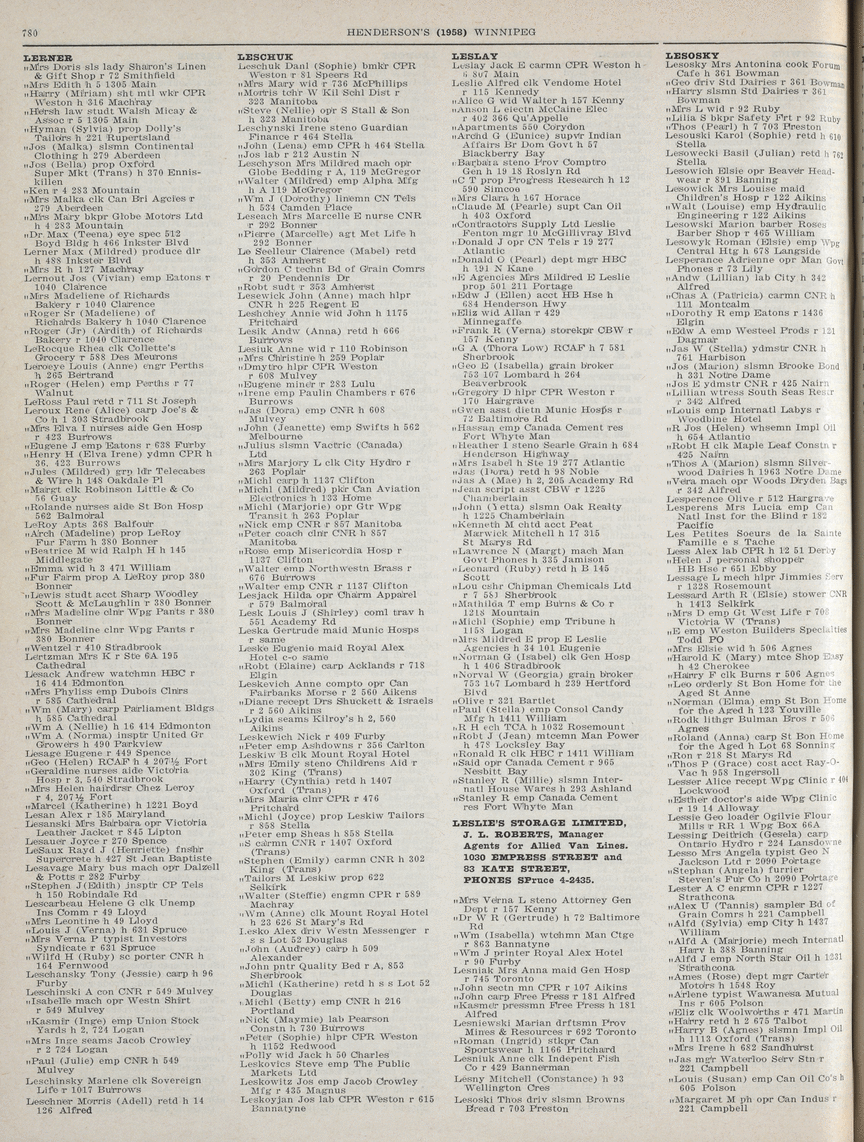 780
HENDERSON'S (1958) WINNIPEG
LERNER
„Mrs Doris sls lady Sharon's Linen
& Gift Shop r 72 Smithfield
„Mrs Edith h 5 1305 Main
„Harry (Miriam) sht mtl wkr CPR
Weston h 316 Machray
„Hersh law studt Walsh Micay &
Assoc r 5 1305 Main
„Hyman (Sylvia) prop Dolly's
Tailors h 221 Rupertsland
„Jos (Malka) slsmn Continental
Clothing h 279 Aberdeen
„Jos (Bella) prop Oxford
Super Mkt (Trans) h 370 Ennis-
killen
„Ken r 4 283 Mountain
„Mrs Malka clk Can Bri Agcies r
279 Aberdeen
„Mrs Mary bkpr Globe Motors Ltd
h 4 283 Mountain
„Dr Max (Teena) eye spec 512
Boyd Bldg h 466 Inkster Blvd
Lerner Max (Mildred) produce dlr
h 488 Inkster Blvd
„Mrs R h 127 Machray
Lernout Jos (Vivian) emp Eatons r
1040 Clarence
„Mrs Madeliene of Richards
Bakery r 1040 Clarence
„Roger Sr (Madeliene) of
Richards Bakery h 1040 Clarence
„Roger (Jr) (Ardith) of Richards
Bakery r 1040 Clarence
LeRocque Rhea clk Collette's
Grocery r 588 Des Meurons
Leroeye Louis (Anne) engr Perths
h 265 Bertrand
„Roger (Helen) emp Perths r 77
Walnut
LeRoss Paul retd r 711 St Joseph
Leroux Rene (Alice) carp Joe's &
Co h 1 303 Stradbrook
„Mrs Elva I nurses aide Gen Hosp
r 423 Burrows
„Eugene J emp Eatons r 638 Furby
„Henry H (Elva Irene) ydmn CPR h
36, 423 Burrows
„Jules (Mildred) grp ldr Telecabes
& Wire h 148 Oakdale Pl
„Margt clk Robinson Little & Co
56 Guay
„Rolande nurses aide St Bon Hosp
562 Balmoral
LeRoy Apts 368 Balfour
„Arch (Madeline) prop LeRoy
Fur Farm h 380 Bonner
„Beatrice M wid Ralph H h 145
Middlegate
„Emma wid h 3 471 William
„Fur Farm prop A LeRoy prop 380
Bonner
„Lewis studt acct Sharp Woodley
Scott & McLaughlin r 380 Bonner
„Mrs Madeline clnr Wpg Pants r 380
Bonner
„Mrs Madeline clnr Wpg Pants r
380 Bonner
„Wentzel r 410 Stradbrook
Lertzman Mrs K r Ste 6A 195
Cathedral
Lesack Andrew watchmn HBC r
16 414 Edmonton
„Mrs Phyliss emp Dubois Clnrs
r 585 Cathedral
„Wm (Mary) carp Parliament Bldgs
h 585 Cathedral
„Wm A (Nellie) h 16 414 Edmonton
„Wm A (Norma) insptr United Gr
Growers h 490 Parkview
Lesage Eugene r 449 Spence
„Geo (Helen) RCAF h 4 207½ Fort
„Geraldine nurses aide Victoria
Hosp r 3, 540 Stradbrook
„Mrs Helen hairdrsr Chez Leroy
r 4, 207½ Fort
„Marcel (Katherine) h 1221 Boyd
Lesan Alex r 185 Maryland
Lesanski Mrs Barbara opr Victoria
Leather Jacket r 845 Lipton
Lesauer Joyce r 270 Spence
LeSaux Rayd J (Henriette) fnshr
Supercrete h 427 St Jean Baptiste
Lesavage Mary bus mach opr Dalzell
& Potts r 282 Furby
„Stephen J(Edith) insptr CP Tels
h 150 Robindale Rd
Lescarbeau Helene G clk Unemp
Ins Comm r 49 Lloyd
„Mrs Leontine h 49 Lloyd
„Louis J (Verna) h 631 Spruce
„Mrs Verna P typist Investors
Syndicate r 631 Spruce
„Wilfd H (Ruby) sc porter CNR h
164 Fernwood
Leschansky Tony (Jessie) carp h 96
Furby
Leschinski A con CNR r 549 Mulvey
„Isabelle mach opr Westn Shirt
r 549 Mulvey
„Kasmir (Inge) emp Union Stock
Yards h 2, 724 Logan
„Mrs Inge seams Jacob Crowley
r 2 724 Logan
„Paul (Julie) emp CNR h 549
Mulvey
Leschinsky Marlene clk Sovereign
Life r 1017 Burrows
Leschner Morris (Adell) retd h 14
126 Alfred
LESCHUK
Leschuk Danl (Sophie) bmkr CPR
Weston r 81 Speers Rd
„Mrs Mary wid r 736 McPhillips
„Morris tchr W Kil Schl Dist r
323 Manitoba
„Steve (Nellie) opr S Stall & Son
h 323 Manitoba
Leschynski Irene steno Guardian
Finance r 464 Stella
„John (Lena) emp CPR h 464 Stella
„Jos lab r 212 Austin N
Leschyson Mrs Mildred mach opr
Globe Bedding r A, 119 McGregor
„Walter (Mildred) emp Alpha Mfg
h A 119 McGregor
„Wm J (Dorothy) linemn CN Tels
h 534 Camden Place
Leseach Mrs Marcelle E nurse CNR
r 292 Bonner
„Pierre (Marcelle) agt Met Life h
292 Bonner
Le Seelleur Clarence (Mabel) retd
h 353 Amherst
„Gordon C techn Bd of Grain Comrs
r 20 Pendennis Dr
„Robt sudt r 353 Amherst
Lesewick John (Anne) mach hlpr
CNR h 225 Regent E
Leshchey Annie wid John h 1175
Pritchard
Lesik Andw (Anna) retd h 666
Burrows
Lesiuk Anne wid r 110 Robinson
„Mrs Christine h 259 Poplar
„Dmytro hlpr CPR Weston
r 608 Mulvey
„Eugene miner r 283 Lulu
„Irene emp Paulin Chambers r 676
Burrows
„Jas (Dora) emp CNR h 608
Mulvey
„John (Jeanette) emp Swifts h 562
Melbourne
„Julius slsmn Vactric (Canada)
Ltd
„Mrs Marjory L clk City Hydro r
263 Poplar
„Michl carp h 1137 Clifton
„Michl (Mildred) pkr Can Aviation
Electronics h 133 Home
„Michl (Marjorie) opr Gtr Wpg
Transit h 263 Poplar
„Nick emp CNR r 857 Manitoba
„Peter coach clnr CN h 857
Manitoba
„Rose emp Misericordia Hosp r
1137 Clifton
„Walter emp Northwestn Brass r
676 Burrows
„Walter emp CNR r 1137 Clifton
Lesjack Hilda opr Charm Apparel
r 579 Balmoral
Lesk Louis J (Shirley) coml trav h
551 Academy Rd
Leska Gertrude maid Munic Hosps
r same
Leske Eugenie maid Royal Alex
Hotel c-o same
„Robt (Elaine) carp Acklands r 718
Elgin
Leskevich Anne compto opr Can
Fairbanks Morse r 2 560 Aikens
„Diane recept Drs Shuckett & Israels
r 2 560 Aikins
„Lydia seams Kilroy's h 2, 560
Aikins
Leskewich Nick r 409 Furby
„Peter emp Ashdowns r 356 Carlton
Leskiw B clk Mount Royal Hotel
„Mrs Emily steno Childrens Aid r
302 King (Trans)
„Harry (Cynthia) retd h 1407
Oxford (Trans)
„Mrs Maria clnr CPR r 476
Pritchard
„Michl (Joyce) prop Leskiw Tailors
r 858 Stella
„Peter emp Sheas h 858 Stella
„S carmn CNR r 1407 Oxford
(Trans)
„Stephen (Emily) carmn CNR h 302
King (Trans)
„Tailors M Leskiw prop 622
Selkirk
„Walter (Steffie) engmn CPR r 589
Machray
„Wm (Anne) clk Mount Royal Hotel
h 23 626 St Mary's Rd
Lesko Alex driv Westn Messenger r
s s Lot 52 Douglas
„John (Audrey) carp h 509
Alexander
„John pntr Quality Bed r A, 853
Sherbrook
„Michl (Katherine) retd h s s Lot 52
Douglas
„Michl (Betty) emp CNR h 216
Portland
„Nick (Maymie) lab Pearson
Constn h 730 Burrows
„Peter (Sophie) hlpr CPR Weston
h 1152 Redwood
„Polly wid Jack h 50 Charles
Leskovics Steve emp The Public
Markets Ltd
Leskowitz Jos emp Jacob Crowley
Mfg r 435 Magnus
Leskoyjan Jos lab CPR Weston r 615
Bannatyne
LESLAY
Leslay Jack E carmn CPR Weston h
8 807 Main
Leslie Alfred clk Vendome Hotel
r 115 Kennedy
„Alice G wid Walter h 157 Kenny
„Anson L electn McCaine Elec
r 402 366 Qu'Appelle
„Apartments 550 Corydon
„Archd G (Eunice) supvr Indian
Affairs Br Dom Govt h 57
Blackberry Bay
„Barbara steno Prov Comptro
Gen h 19 18 Roslyn Rd
„C T prop Progress Research h 12
590 Simcoe
„Mrs Clara h 167 Horace
„Claude M (Pearle) supt Can Oil
h 403 Oxford
„Contractors Supply Ltd Leslie
Fenton mgr 10 McGillivray Blvd
„Donald J opr CN Tels r 19 277
Atlantic
„Donald O (Pearl) dept mgr HBC
h 191 N Kane
„E Agencies Mrs Mildred E Leslie
prop 501 211 Portage
„Edw J (Ellen) acct HB Hse h
684 Henderson Hwy
„Eliz wid Allan r 429
Minnegaffe
„Frank R (Verna) storekpr CBW r
157 Kenny
„G A (Thora Low) RCAF h 7 581
Sherbrook
„Geo E (Isabella) grain broker
753 167 Lombard h 264
Beaverbrook
„Gregory D hlpr CPR Weston r
170 Hargrave
„Gwen asst dietn Munic Hosps r
72 Baltimore Rd
„Hassan emp Canada Cement res
Fort Whyte Man
„Heather I steno Searle Grain h 684
Henderson Highway
„Mrs Isabel h Ste 19 277 Atlantic
„Jas (Dora) retd h 98 Noble
„Jas A (Mae) h 2, 205 Academy Rd
„Jean script asst CBW r 1225
Chamberlain
„John (Yetta) slsmn Oak Realty
h 1225 Chamberlain
„Kenneth M chtd acct Peat
Marwick Mitchell h 17 315
St Marys Rd
„Lawrence N (Margt) mach Man
Govt Phones h 335 Jamison
„Leonard (Ruby) retd h B 145
Scott
„Lou cshr Chipman Chemicals Ltd
r 7 581 Sherbrook
„Mathilda T emp Burns & Co r
1218 Mountain
„Michl (Sophie) emp Tribune h
1158 Logan
„Mrs Mildred E prop E Leslie
Agencies h 34 101 Eugenie
„Norman G (Isabel) clk Gen Hosp
h 1 406 Stradbrook
„Norval W (Georgia) grain broker
753 167 Lombard h 239 Hertford
Blvd
„Olive r 321 Bartlet
„Paul (Stella) emp Consol Candy
Mfg h 1411 William
„R H ech TCA h 1032 Rosemount
„Robt J (Jean) mtcemn Man Power
h 478 Locksley Bay
„Ronald R clk HBC r 1411 William
„Said opr Canada Cement r 965
Nesbitt Bay
„Stanley R (Millie) slsmn Inter-
natl House Wares h 293 Ashland
„Stanley R emp Canada Cement
res Fort Whyte Man
LESLIE'S STORAGE LIMITED,
J. L. ROBERTS, Manager
Agents for Allied Van Lines.
1030 EMPRESS STREET and
83 KATE STREET,
PHONES SPruce 4-2435.
„Mrs Verna L steno Attorney Gen
Dept r 157 Kenny
„Dr W R (Gertrude) h 72 Baltimore
Rd
„Wm (Isabella) wtchmn Man Ctge
r 863 Bannatyne
„Wm J printer Royal Alex Hotel
r 90 Furby
Lesniak Mrs Anna maid Gen Hosp
r 745 Toronto
„John sectn mn CPR r 107 Aikins
„John carp Free Press r 181 Alfred
„Kasmer pressmn Free Press h 181
Alfred
Lesniewski Marian drftsmn Prov
Mines & Resources r 692 Toronto
„Roman (Ingrid) stkpr Can
Sportswear h 1166 Pritchard
Lesniuk Anne clk Indepent Fish
Co r 429 Bannerman
Lesny Mitchell (Constance) h 93
Wellington Cres
Lesoski Thos driv slsmn Browns
Bread r 703 Preston
LESOSKY
Lesosky Mrs Antonina cook Forum
Cafe h 361 Bowman
„Geo driv Std Dairies r 361 Bowman
„Harry slsmn Std Dairies r 361
Bowman
„Mrs L wid r 92 Ruby
„Lilia S bkpr Safety Frt r 92 Ruby
„Thos (Pearl) h 7 703 Preston
Lesouski Karol (Sophie) retd h 610
Stella
Lesowecki Basil (Julian) retd h 762
Stella
Lesowich Elsie opr Beaver Head-
wear r 891 Banning
Lesowick Mrs Louise maid
Children's Hosp r 122 Aikins
„Walt (Louise) emp Hydraulic
Engineering r 122 Aikins
Lesowski Marion barber Roses
Barber Shop r 465 William
Lesowyk Roman (Elsie) emp Wpg
Central Htg h 678 Langside
Lesperance Adrienne opr Man Govt
Phones r 73 Lily
„Andw (Lillian) lab City h 342
Alfred
„Chas A (Patricia) carmn CNR h
111 Montcalm
„Dorothy R emp Eatons r 1436
Elgin
„Edw A emp Westeel Prods r 121
Dagmar
„Jas W (Stella) ydmstr CNR h
761 Harbison
„Jos (Marion) slsmn Brooke Bond
h 331 Notre Dame
„Jos E ydmstr CNR r 425 Nairn
„Lillian wtress South Seas Restr
r 342 Alfred
„Louis emp Internatl Labys r
Woodbine Hotel
„R Jos (Helen) whsemn Impl Oil
h 654 Atlantic
„Robt H clk Maple Leaf Constn r
425 Nairn
„Thos A (Marion) slsmn Silver-
wood Dairies h 1963 Notre Dame
„Vera mach opr Woods Dryden Bags
r 342 Alfred
Lesperence Olive r 512 Hargrave
Lesperens Mrs Lucia emp Can
Natl Inst for the Blind r 182
Pacific
Les Petites Soeurs de la Sainte
Famille e s Tache
Less Alex lab CPR h 12 51 Derby
„Helen J personal shopper
HB Hse r 651 Ebby
Lessage L mech hlpr Jimmies Serv
r 1328 Rosemount
Lessard Arth R (Elsie) stower CNR
h 1413 Selkirk
„Mrs D emp Gt West Life r 708
Victoria W (Trans)
„E emp Western Builders Specialties
Todd PO
„Mrs Elsie wid h 506 Agnes
„Harold K (Mary) mtce Shop Easy
h 42 Cherokee
„Harry F clk Burns r 506 Agnes
„Leo orderly St Bon Home for the
Aged St Anne
„Norman (Elma) emp St Bon Home
for the Aged h 123 Youville
„Rodk lithgr Bulman Bros r 506
Agnes
„Roland (Anna) carp St Bon Home
for the Aged h Lot 68 Sonning
„Ron r 218 St Marys Rd
„Thos P (Grace) cost acct Ray-O-
Vac h 958 Ingersoll
Lesser Alice recept Wpg Clinic r 404
Lockwood
„Esther doctor's aide Wpg Clinic
r 19 14 Alloway
Lessie Geo loader Ogilvie Flour
Mills r RR 1 Wpg Box 66A
Lessing Deitrich (Gesela) carp
Ontario Hydro r 224 Lansdowne
Lesso Mrs Angela typist Geo N
Jackson Ltd r 2090 Portage
„Stephan (Angela) furrier
Steven's Fur Co h 2090 Portage
Lester A C engmn CPR r 1227
Strathcona
„Alex U (Tannis) sampler Bd of
Grain Comrs h 221 Campbell
„Alfd (Sylvia) emp City h 1437
William
„Alfd A (Marjorie) mech Internatl
Harv h 388 Banning
„Alfd J emp North Star Oil h 1231
Strathcona
„Ames (Rose) dept mgr Carter
Motors h 1548 Roy
„Arlene typist Wawanesa Mutual
Ins r 605 Polson
„Eliz clk Woolworths r 471 Martin
„Harry retd h 2 675 Talbot
„Harry B (Agnes) slsmn Impl Oil
h 1113 Oxford (Trans)
„Mrs Irene h 682 Sandhurst
„Jas mgr Waterloo Serv Stn r
221 Campbell
„Louis (Susan) emp Can Oil Co's h
605 Polson
„Margaret M ph opr Can Indus r
221 Campbell